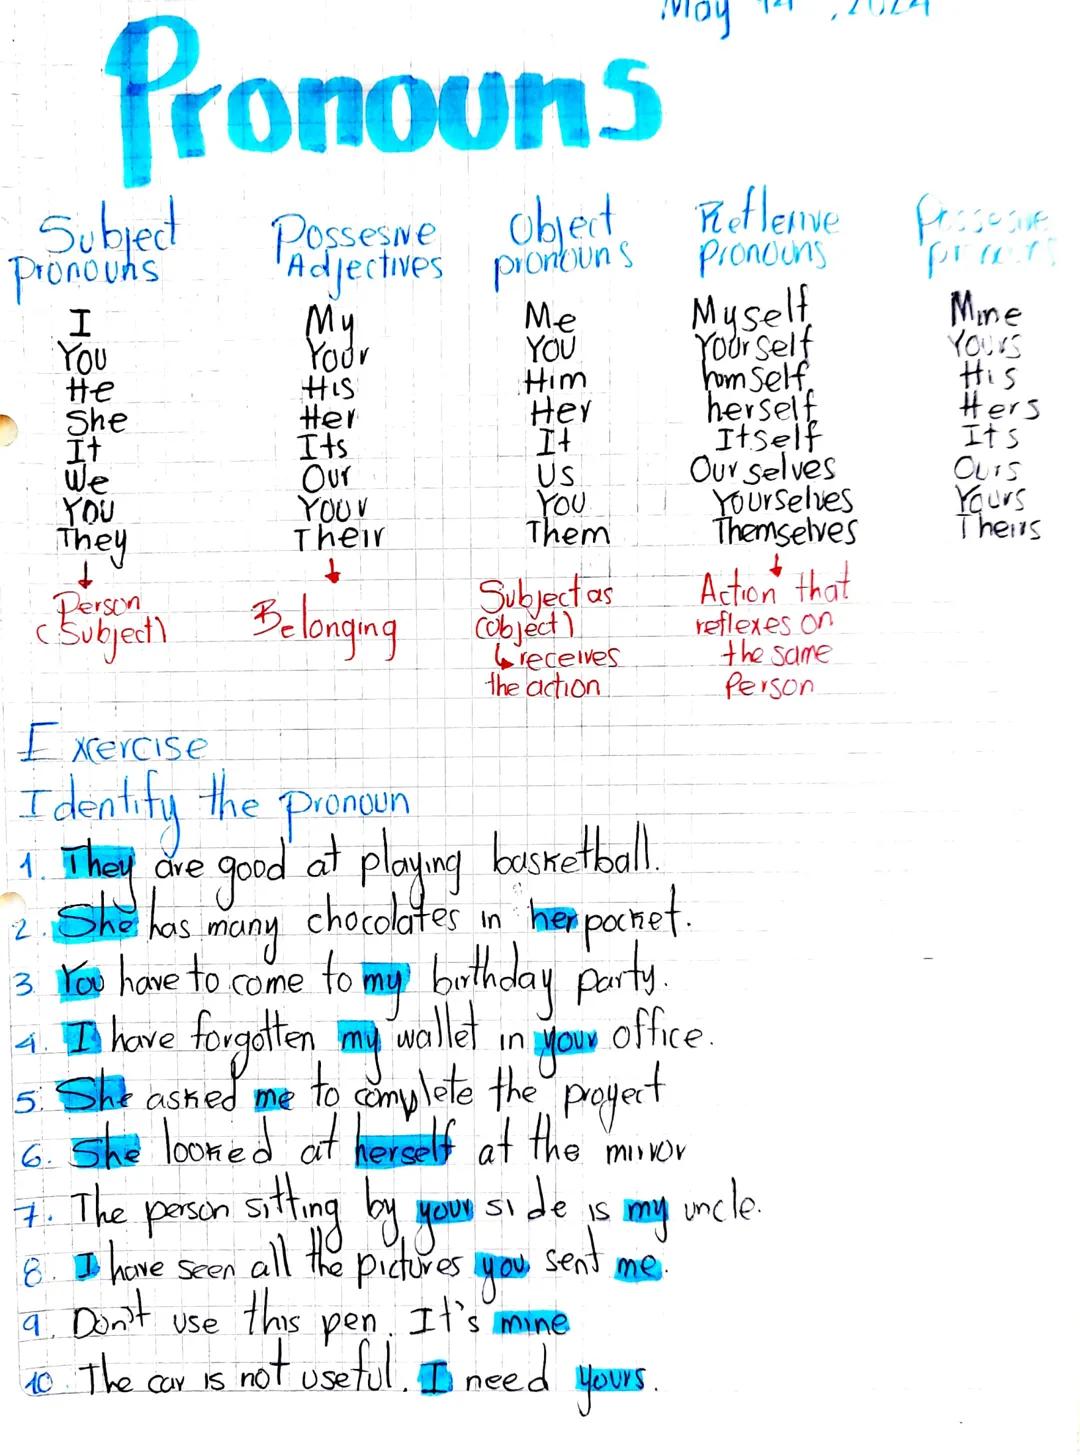 May 14, 2024
Pronouns
Subject Pronouns
Possesive Adjectives
Object pronouns
Reflexive pronouns
Possesive
I My Me Myself Mine
You Your You Yourself Yours
He His Him homself His
She Her Her herself Hers
It Its It Itself Its
We Our Us Ourselves Ours
You Your You Yourselves Yours
They Their Them Themselves Theirs
Person
(Subject)
Belonging
Subject as
(object)
↳ receives
the action
Action that
reflexes on
the same
Person
Excercise
Identify the pronoun
1. They are good at playing basketball.
2. She has many chocolates in her pocket.
3. You have to come to my birthday party.
4. I have forgotten my wallet in your office.
5. She asked me to complete the proyect
6. She looked at herself at the mirror
7. The person sitting by your side is my uncle.
8. I have seen all the pictures you sent me.
9. Don't use this pen. It's mine
10. The car is not useful. I need yours.